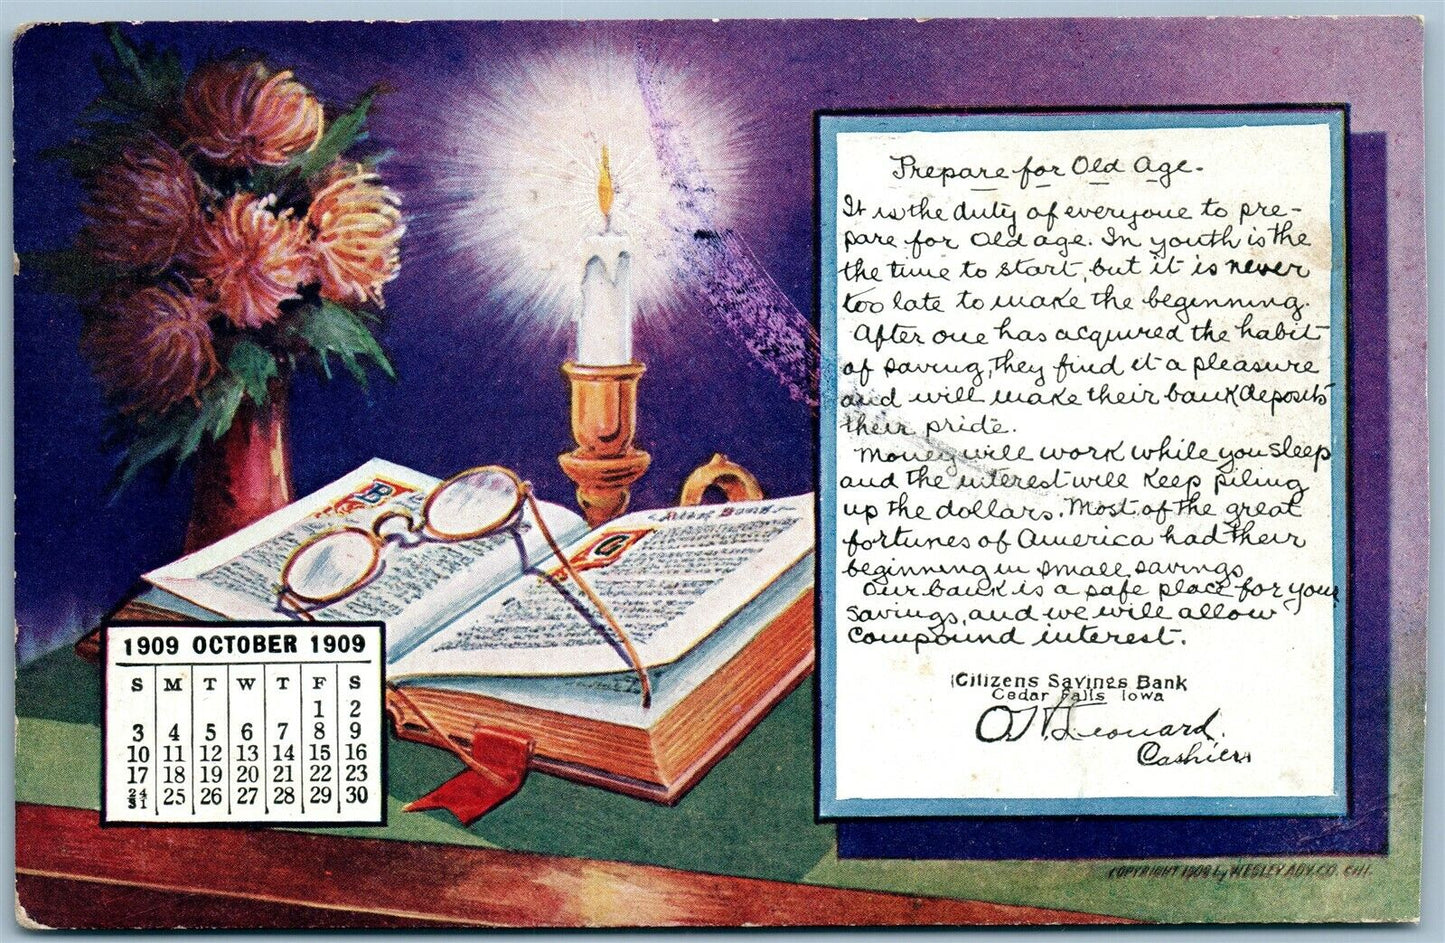 Prepare for Old Age.
It is the duty of everyone to pre-
pare for Old age. In youth is the
the time to start, but it is never
too late to make the beginning.
After one has acquired the habit
of saving, they find it a pleasure
and will make their bank deposits
their pride.
Money will work while you sleep
and the interest will keep piling
up the dollars. Most of the great
fortunes of America had their
beginning in small savings
Our bank is a safe place for your
savings, and we will allow
compound interest.
Citizens Savings Bank
Cedar Falls Iowa
Leonard.
Cashier
1909 OCTOBER 1909
S M T W T F S
1 2
3 4 5 6 7 8 9
10 11 12 13 14 15 16
17 18 19 20 21 22 23
24/31 25 26 27 28 29 30
COPYRIGHT 1908 by WESLEY ADV. CO. CHI.